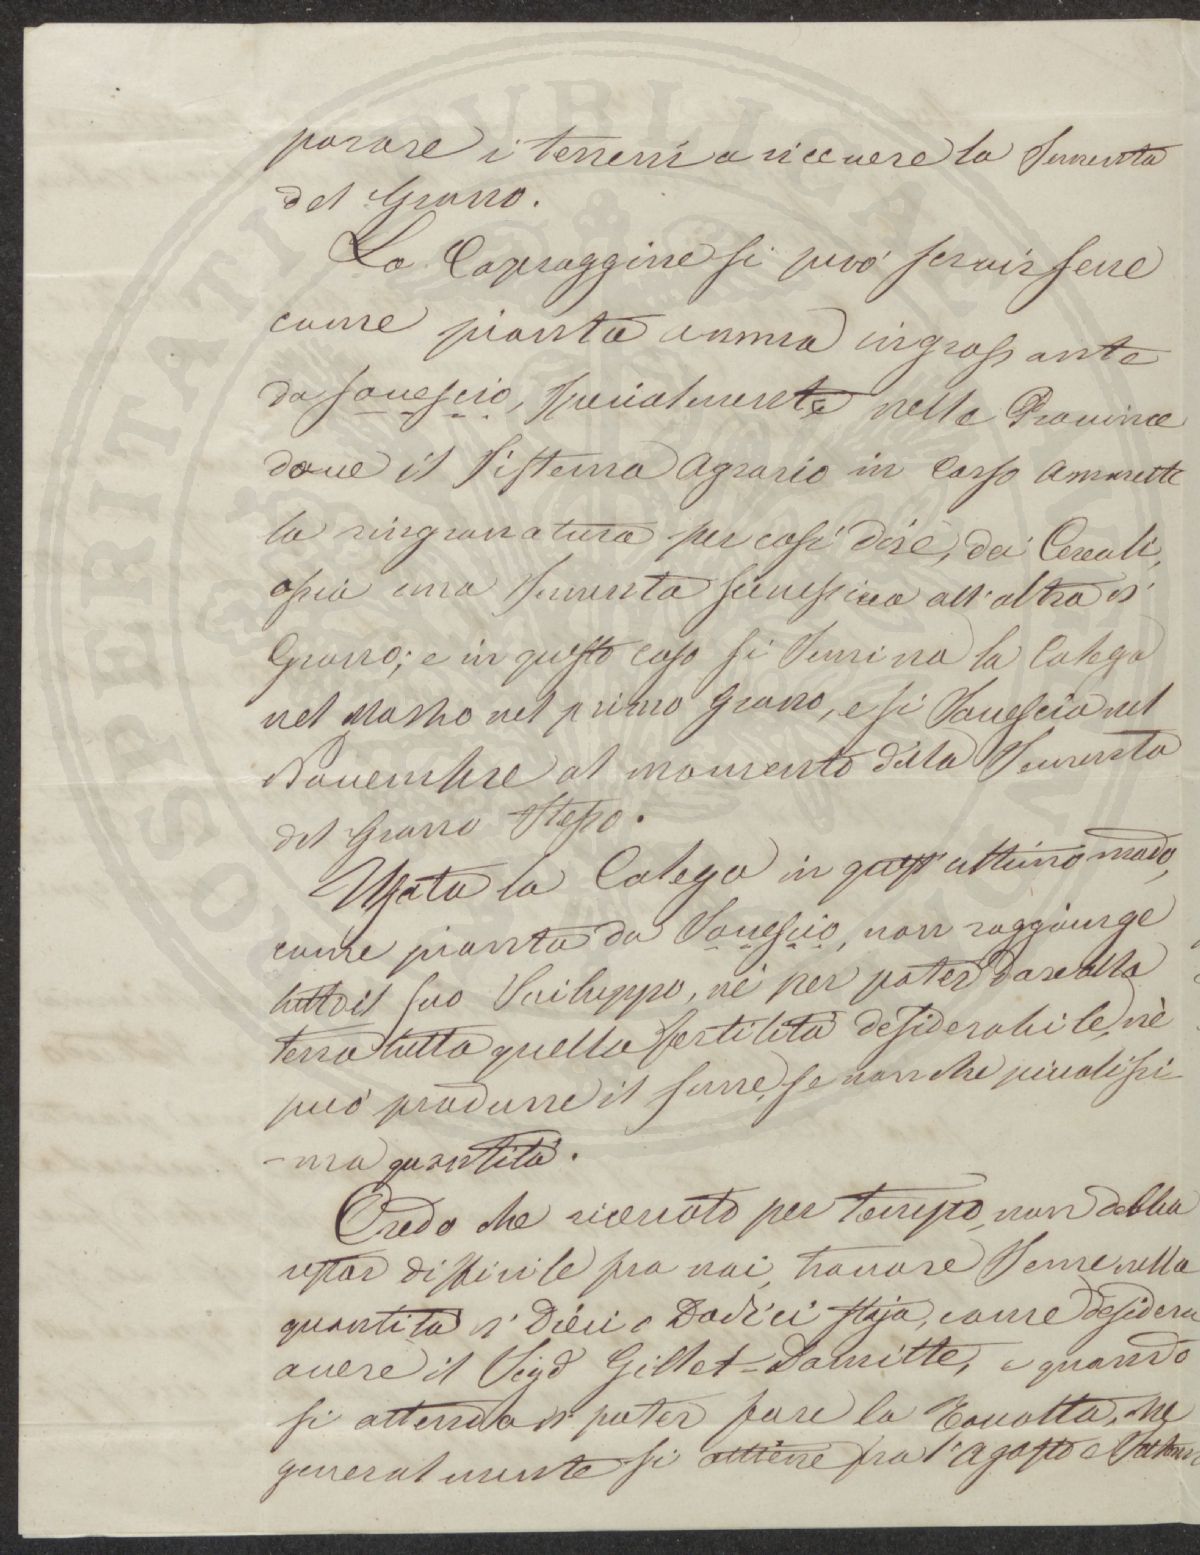 parare i terreni a ricevere la Sementa
del Grano.
La Capraggine si può servirsene
come pianta annua ingrassante
da sovescio, specialmente nelle Province
dove il Sistema Agrario in Corso ammette
la ringranatura per così dire, dei Cereali,
ossia una Sementa successiva all'altra di
Grano; e in questo caso si Semina la Calega
nel Marzo nel primo grano, e si Sovescia nel
Novembre al momento della Sementa
del Grano Stesso.
Usata la Calega in quest'ultimo modo,
come pianta da Sovescio, non raggiunge
tutto il suo Sviluppo, nè per poter dare alla
terra tutta quella fertilità desiderabile, nè
può produrre il seme, se non che piccolissi-
-ma quantità.
Credo che ricercato per tempo, non debba
restar difficile fra noi, trovare Seme nella
quantità di Dieci o Dodici staja, come desidera
avere il Sigr Gillet-Damitte, e quando
si attenda di poter fare la Raccolta, che
generalmente si ottiene fra l'Agosto e Settem